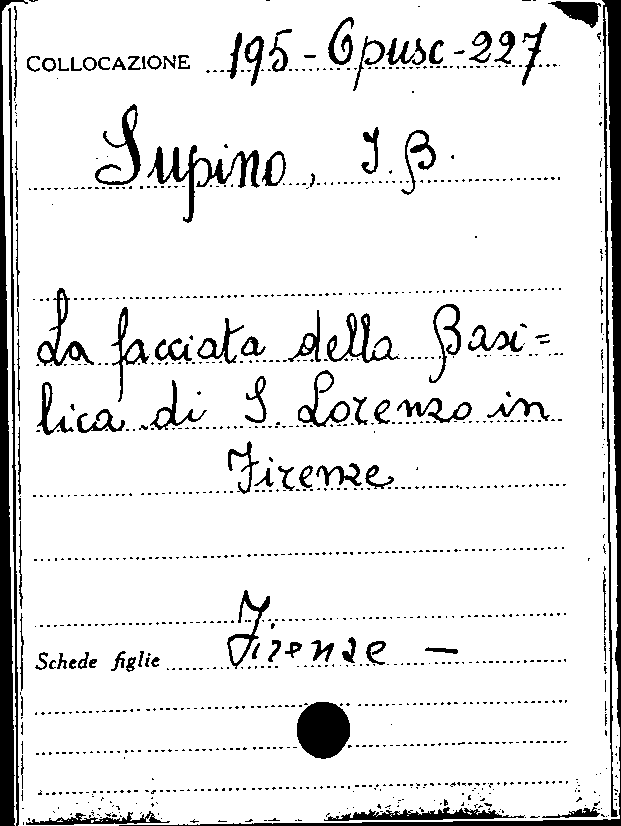 COLLOCAZIONE 195-Opusc-227
Supino, I.B.
La facciata della Basi=
lica di S. Lorenzo in
Firenze
Schede figlie Firenze —